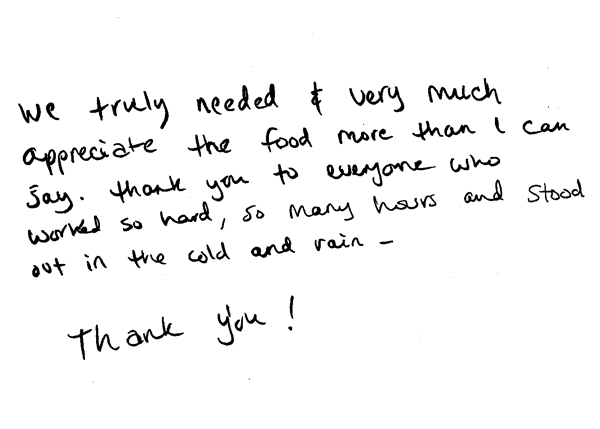 We truly needed & very much
appreciate the food more than I can
say. Thank you to everyone who
worked so hard, so many hours and stood
out in the cold and rain –
Thank you!